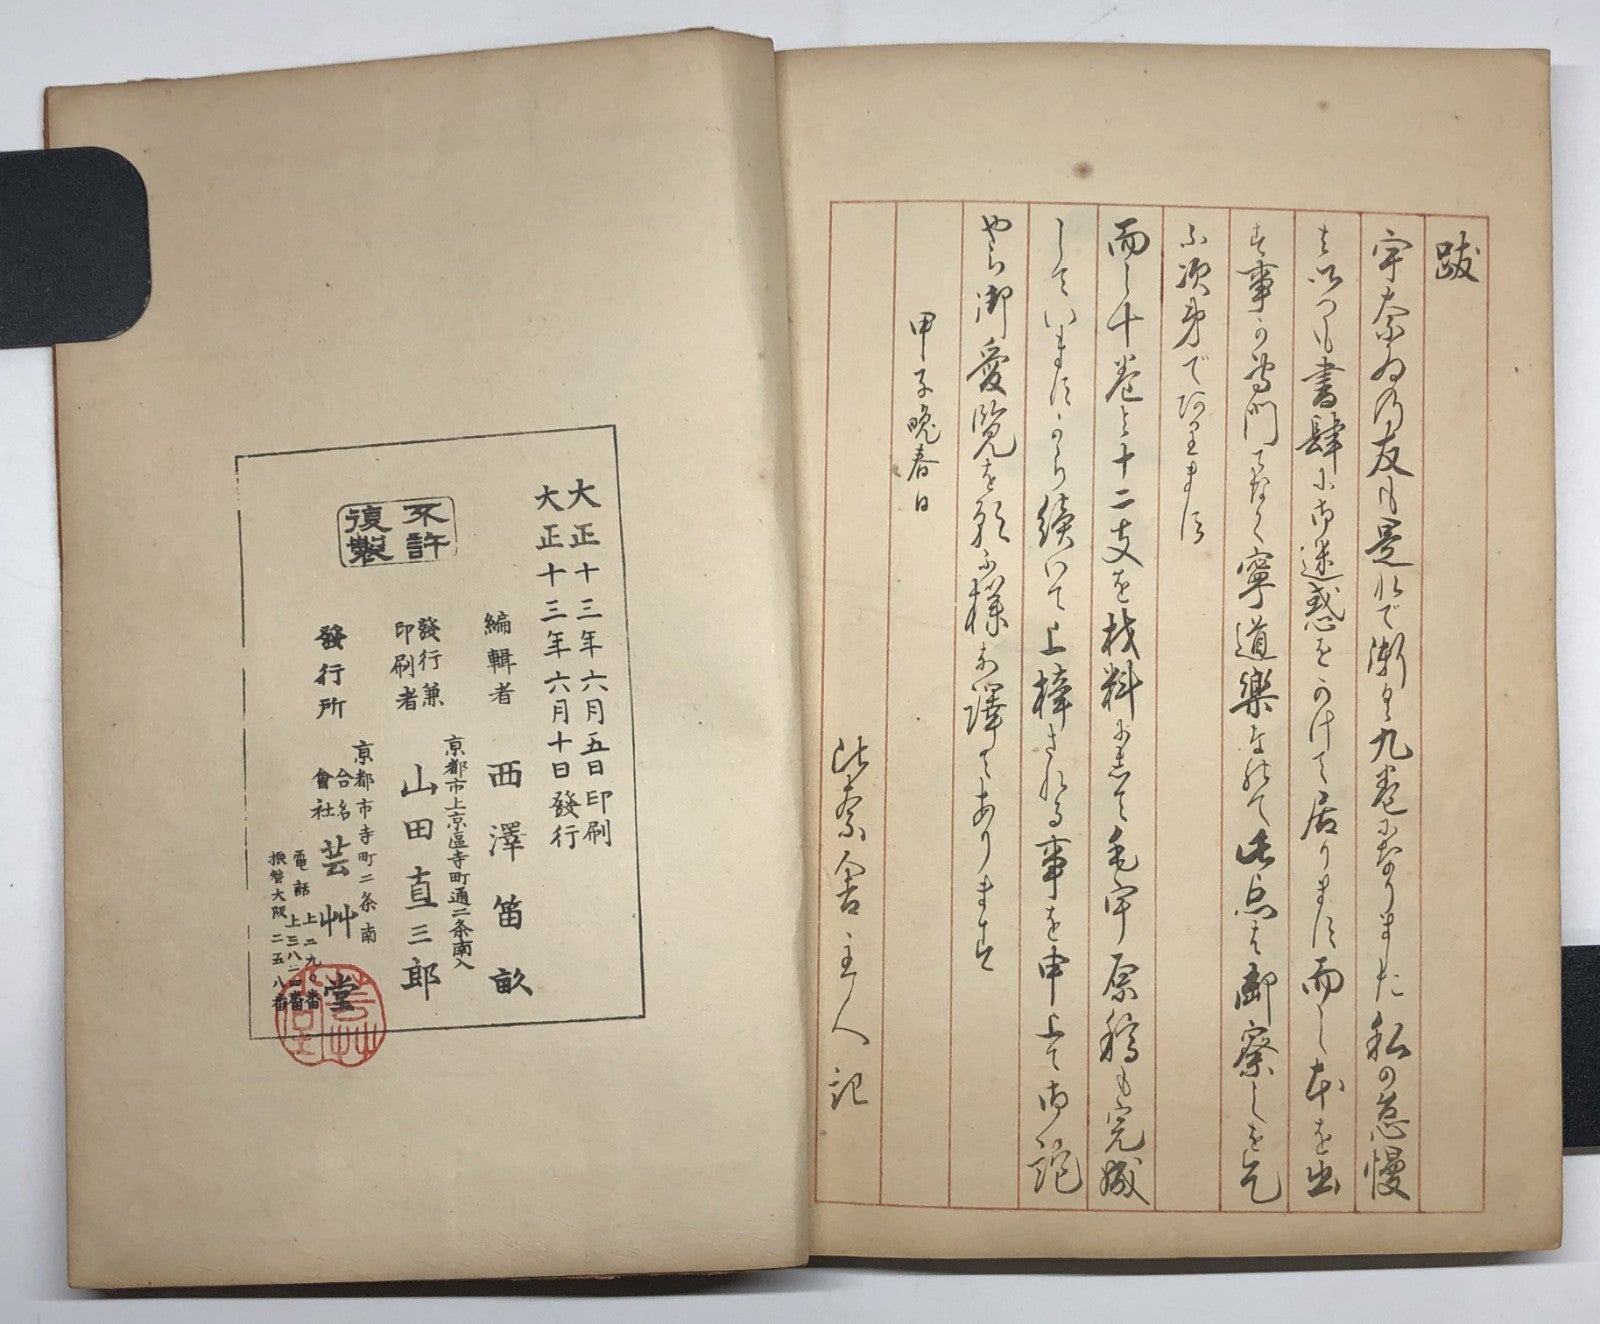 跋
宇奈ゐの友も是れで漸く九巻になりました私の怠慢
はいつも書肆に御迷惑をかけて居ります而し本を出
す事が専門でなく寧道楽なので此点は御察しを乞
ふ次第であります
而し十巻と十二支を材料にして毛宇原稿も完成
していますから続いて上梓される事を申上て御詫
やら御愛覧を願ふ様な譯であります
甲子晩春日
比奈舎主人記
大正十三年六月五日印刷
大正十三年六月十日發行
編輯者 西澤笛畝
京都市上京區寺町通二条南入
發行兼印刷者 山田直三郎
不許復製
京都市寺町二条南
發行所 合名會社 芸艸堂
電話 上二九〇番
上三八二四番
振替大阪二五八番
芸艸堂